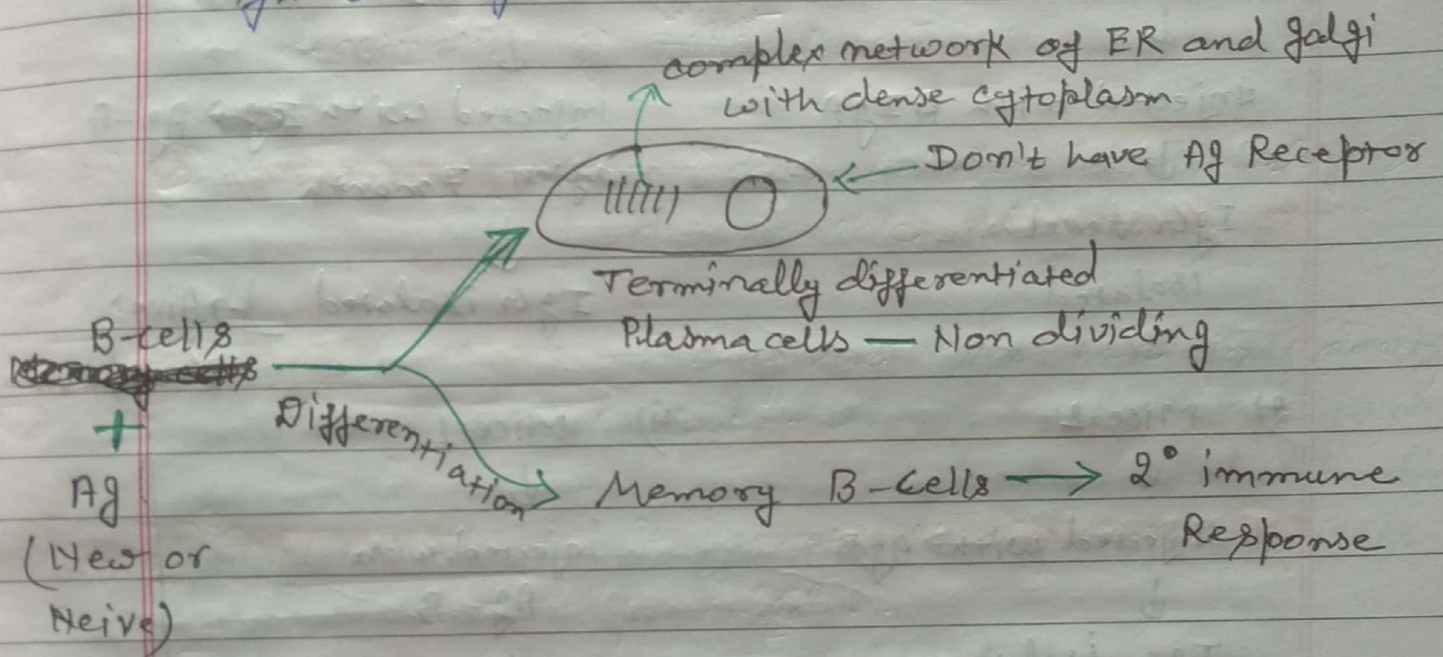 complex network of ER and golgi
with dense cytoplasm
Don't have Ag Receptor
Terminally differentiated
Plasma cells — Non dividing
B-cells
+
Ag
(New or
Neive)
Differentiation
Memory B-cells → 2° immune
Response